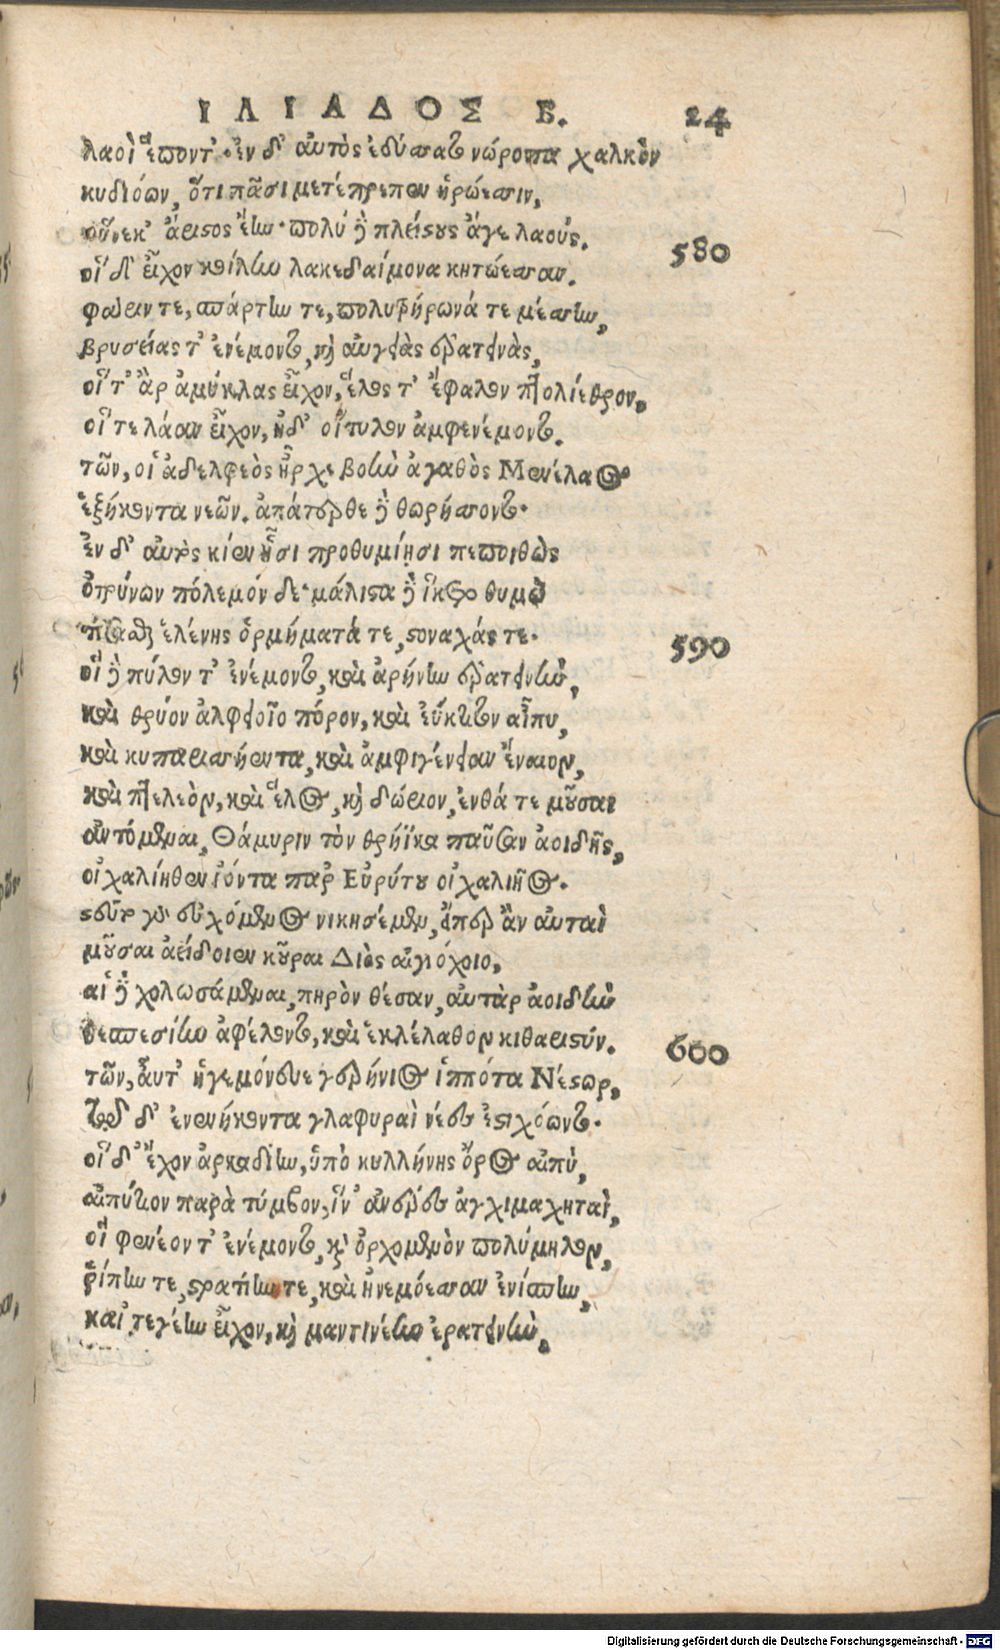 ΙΛΙΑΔΟΣ Β. 24
λαοὶ ἕποντ'· ἐν δ' αὐτὸς ἐδύσατο νώροπα χαλκὸν
κυδιόων, ὅτι πᾶσι μετέπρεπεν ἡρώεσσιν,
οὕνεκ' ἄριστος ἔην· πολὺ δὲ πλείστους ἄγε λαούς. 580
οἳ δ' εἶχον κοίλην λακεδαίμονα κητώεσσαν.
φᾶρίν τε, σπάρτην τε, πολυτρήρωνά τε μέσσην,
βρυσείας τ' ἐνέμοντο, καὶ αὐγειὰς ἐρατεινὰς,
οἵ τ' ἂρ ἀμύκλας εἶχον, ἕλος τ' ἔφαλον πτολίεθρον,
οἵ τε λάαν εἶχον, ἠδ' οἴτυλον ἀμφενέμοντο.
τῶν, οἱ ἀδελφεὸς ἦρχε βοὴν ἀγαθὸς Μενέλαος
ἑξήκοντα νεῶν. ἀπάτερθε δὲ θωρήσοντο·
ἐν δ' αὐτὸς κίεν ᾗσι προθυμίῃσι πεποιθὼς
ὀτρύνων πόλεμόν δε· μάλιστα δὲ ἵετο θυμῷ
τίσασθαι ἑλένης ὁρμήματά τε, στοναχάς τε. 590
οἳ δὲ πύλον τ' ἐνέμοντο, καὶ ἀρήνην ἐρατεινὴν,
καὶ θρύον ἀλφειοῖο πόρον, καὶ ἐύκτιτον αἶπυ,
καὶ κυπαρισσήεντα, καὶ ἀμφιγένειαν ἔναιον,
καὶ πτελεὸν, καὶ ἕλος, καὶ δώριον, ἔνθά τε μοῦσαι
ἀντόμεναι, Θάμυριν τὸν θρήϊκα παῦσαν ἀοιδῆς,
οἰχαλίηθεν ἰόντα παρ' Εὐρύτου οἰχαλιῆος.
στεῦτο γὰρ εὐχόμενος νικησέμεν, εἴπερ ἂν αὐταὶ
μοῦσαι ἀείδοιεν κοῦραι Διὸς αἰγιόχοιο,
αἱ δὲ χολωσάμεναι, πηρὸν θέσαν, αὐτὰρ ἀοιδὴν
θεσπεσίην ἀφέλοντο, καὶ ἐκλέλαθον κιθαριστύν. 600
τῶν, αὖτ' ἡγεμόνευε γερήνιος ἱππότα Νέστωρ,
τῷ δ' ἐνενήκοντα γλαφυραὶ νέες ἐστιχόωντο.
οἳ δ' ἔχον ἀρκαδίην, ὑπὸ κυλλήνης ὄρος αἰπὺ,
αἰπύτιον παρὰ τύμβον, ἵν' ἀνέρες ἀγχιμαχηταὶ,
οἳ φενέον τ' ἐνέμοντο, καὶ ὀρχομενὸν πολύμηλον,
ῥίπην τε, στρατίην τε, καὶ ἠνεμόεσσαν ἐνίσπην,
καὶ τεγέην εἶχον, καὶ μαντινέην ἐρατεινὴν,
Digitalisierung gefördert durch die Deutsche Forschungsgemeinschaft - DFG